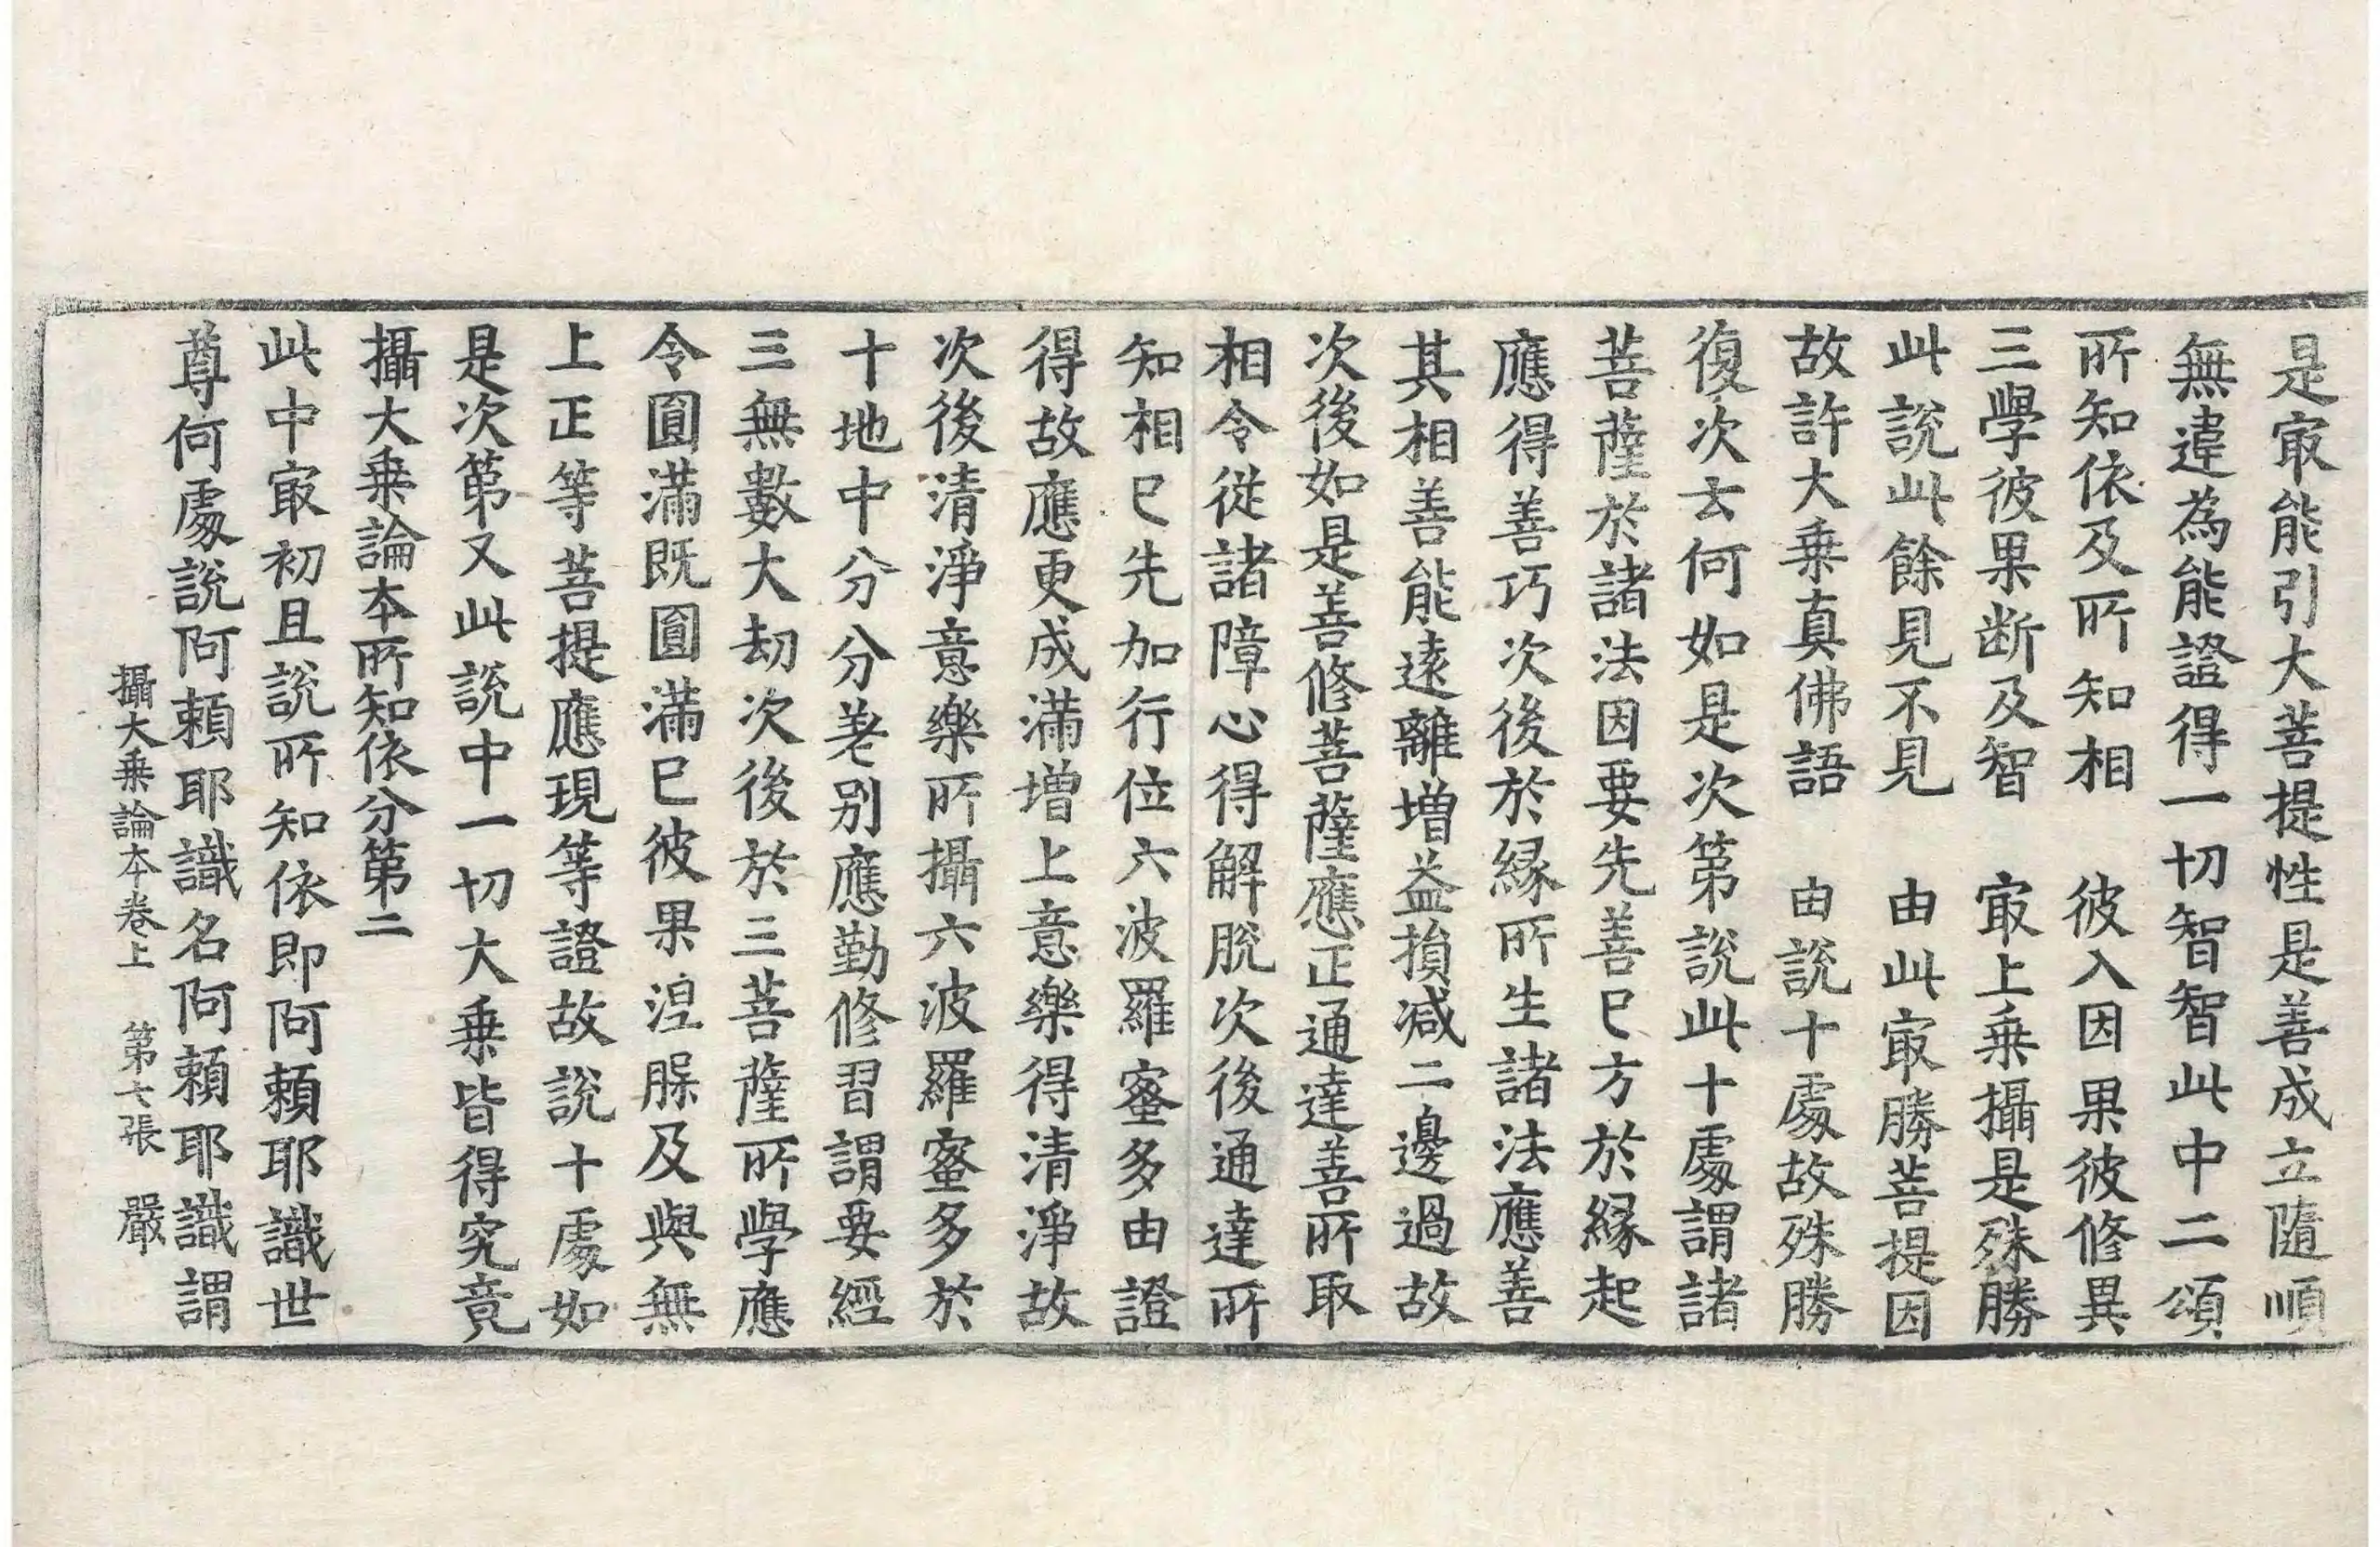 是㝡能引大菩提性是善成立隨順
無違為能證得一切智智此中二頌
所知依及所知相　彼入因果彼修異
三學彼果断及智　㝡上乗攝是殊勝
此說此餘見不見　由此㝡勝菩提因
故許大乗真佛語　由說十處故殊勝
復次云何如是次第說此十處謂諸
菩薩於諸法因要先善巳方於縁起
應得善巧次後於縁所生諸法應善
其相善能遠離增益損减二邊過故
次後如是善修菩薩應正通達善所取
相令從諸障心得解脫次後通達所
知相巳先加行位六波羅蜜多由證
得故應更成滿增上意樂得清淨故
次後清淨意樂所攝六波羅蜜多於
十地中分分差别應勤修習謂要經
三無數大劫次後於三菩薩所學應
令圓滿既圓滿巳彼果涅槃及與無
上正等菩提應現等證故說十處如
是次第又此說中一切大乗皆得究竟
攝大乗論本所知依分第二
此中㝡初且說所知依即阿頼耶識世
尊何處說阿頼耶識名阿頼耶識謂
攝大乗論本卷上　第七張　嚴